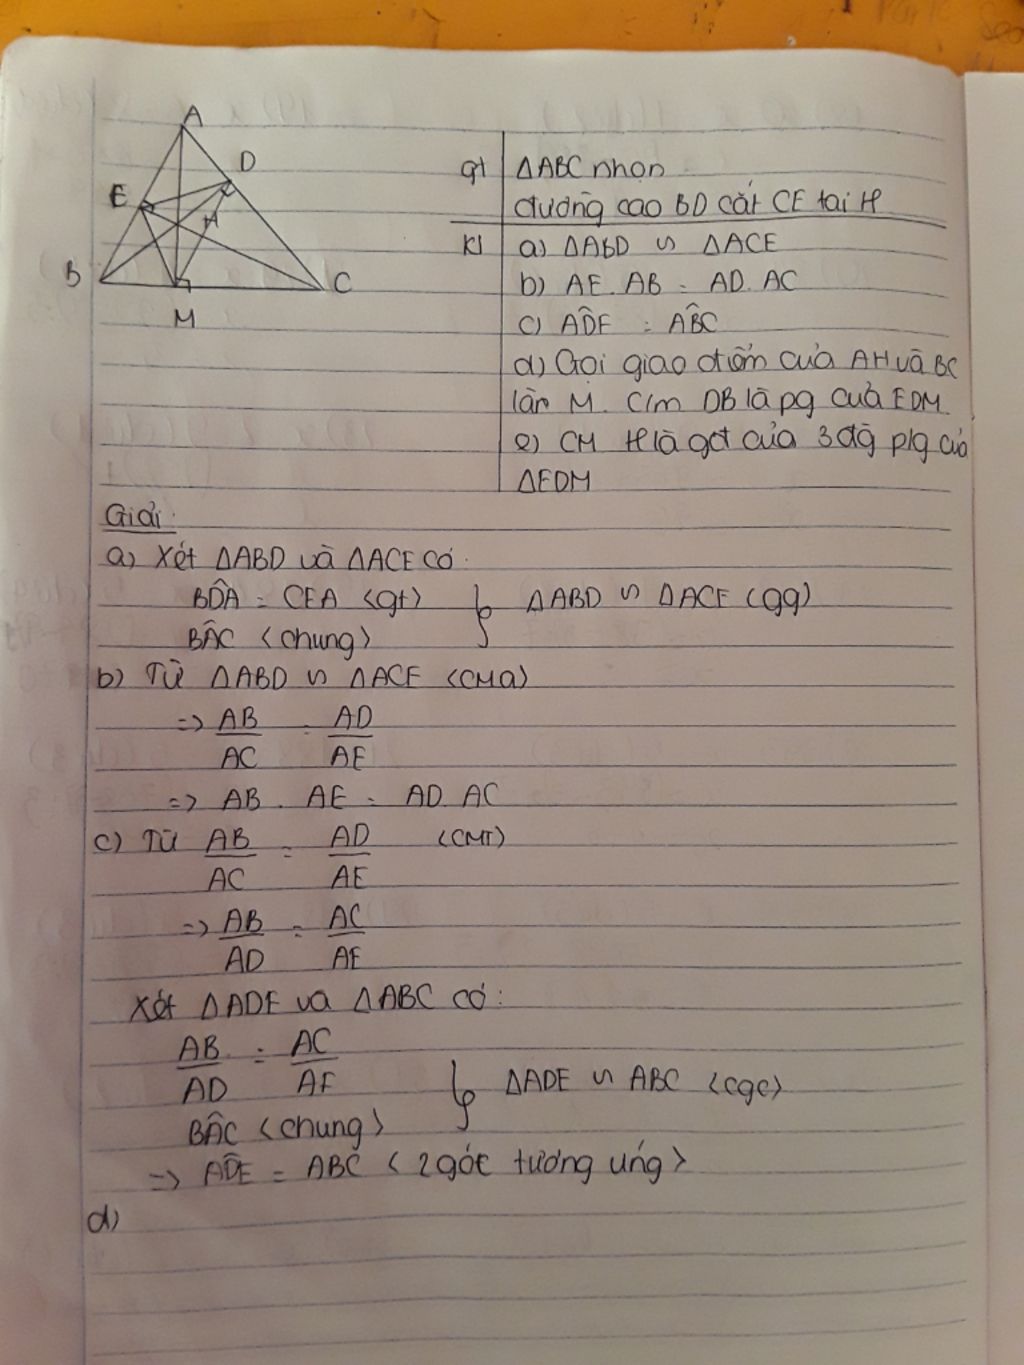 A
D
E
H
B
C
M
gt
ΔABC nhọn
đường cao BD cắt CE tại H
Kl
a) ΔABD ∽ ΔACE
b) AE . AB = AD . AC
c) AD̂E = AB̂C
d) Gọi giao điểm của AH và BC
làn M. C/m DB là pg của EDM.
e) CM H là gđ của 3 đg p/g của
ΔEDM
Giải:
a) Xét ΔABD và ΔACE có:
BD̂A = CEA <gt>
BÂC <chung>
ΔABD ∽ ΔACE (gg)
b) Từ ΔABD ∽ ΔACE <CMa>
=> AB/AC = AD/AE
=> AB . AE = AD . AC
c) Từ AB/AC = AD/AE (CMT)
=> AB/AD = AC/AE
Xét ΔADE và ΔABC có:
AB/AD = AC/AE
BÂC <chung>
ΔADE ∽ ABC <cgc>
=> AD̂E = AB̂C < 2 góc tương ứng >
d)